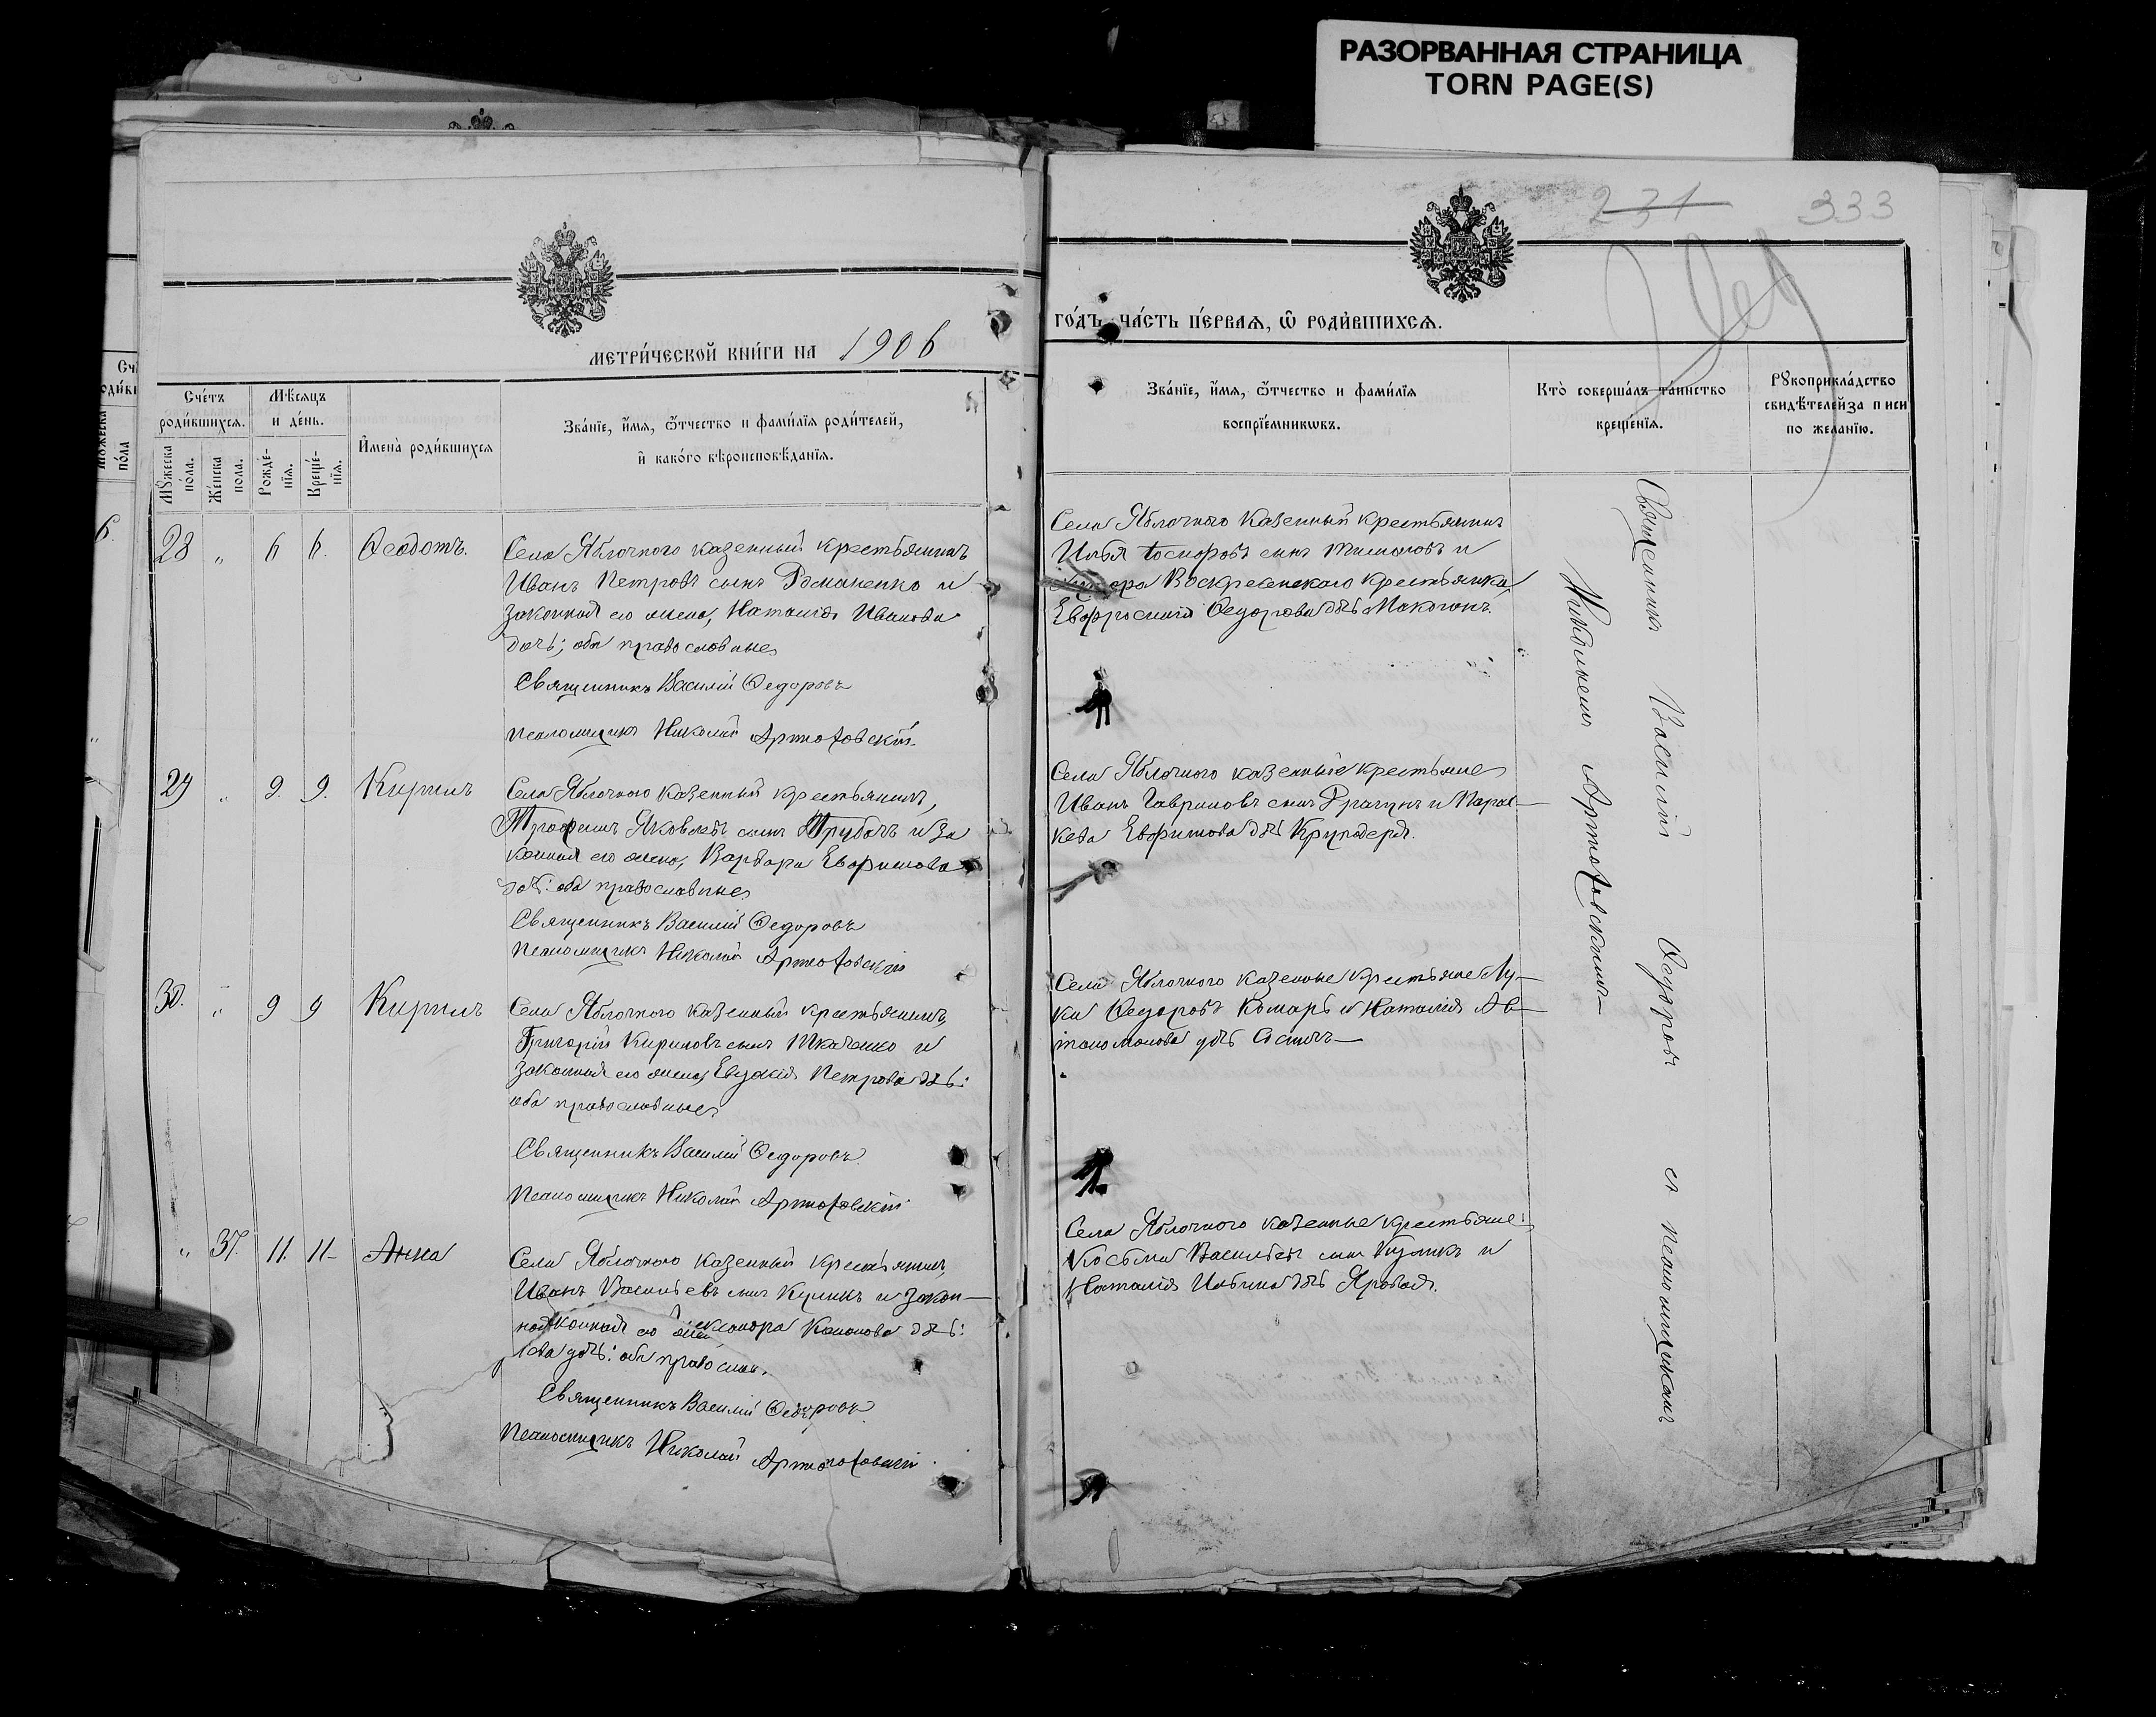 РАЗОРВАННАЯ СТРАНИЦА
TORN PAGE(S)
231 333
МЕТРИ́ЧЕСКОЙ КНИ́ГИ НА 1906
ГО́ДЪ, ЧА́СТЬ ПЕ́РВАЯ, Ѡ РОДИ́ВШИХСЯ.
Сче́тъ роди́вшихся.
Мꙋ́жеска по́ла.
Же́нска по́ла.
Мѣ́сяцъ и де́нь.
Рожде́нїя.
Креще́нїя.
И҆мена̀ роди́вшихся
Зва́нїе, и҆́мя, ѻ҆́тчество и фами́лїя роди́телей,
и҆ како́гѡ вѣроисповѣ́данїя.
Зва́нїе, и҆́мя, ѻ҆́тчество и фами́лїя
воспрїе́мникѡвъ.
Кто̀ соверша́лъ та́инство
креще́нїя.
Рꙋкоприкла́дство
свидѣ́телей за писи
по жела́нїю.
28 " 6 6. Ѳеодотъ.
Села Яблочнаго казенный крестьянинъ
Иванъ Петровъ сынъ Романенко и
законная его жена, Наталія Иванова
дочь; оба православные
Священникъ Василій Ѳедоровъ
Псаломщикъ Николай Артюховскій
Села Яблочнаго казенный крестьянинъ
Илья
Воскресенскаго крестьянка
Евфросинія Ѳедорова дчь Макогонъ.
29 " 9. 9. Кирилъ
Села Яблочнаго казенный крестьянинъ,
Трофимъ Яковлевъ сынъ Трубачъ и за
конная его жена, Варвара Евфимова
дочь: оба православные
Священникъ Василій Ѳедоровъ
Псаломщикъ Николай Артюховскій
Села Яблочнаго казенные крестьяне
Иванъ Гавриловъ сынъ и Парас-
кева Евфимова дчь
30. " 9 9 Кирилъ
Села Яблочнаго казенный крестьянинъ,
Григорій Кириловъ сынъ Ткаченко и
законная его жена, Евдокія Петрова дчь:
оба православные
Священникъ Василій Ѳедоровъ
Псаломщикъ Николай Артюховскій
Села Яблочнаго казенные крестьяне Лу-
ка Ѳедоровъ Комарь и Наталія Ав-
тономова дчь
" 37. 11. 11- Анна
Села Яблочнаго казенный крестьянинъ,
Иванъ Васильевъ сынъ Куликъ и закон-
дчь:
дчь: оба православ.
Священникъ Василій Ѳедоровъ
Псаломщикъ Николай Артюховскій
Села Яблочнаго казенные крестьяне:
Косьма Васильевъ сынъ Куликъ и
Наталія Ильина дчь Яровая.
Священникъ Василій Ѳедоровъ съ псаломщикомъ
Николаемъ Артюховскимъ